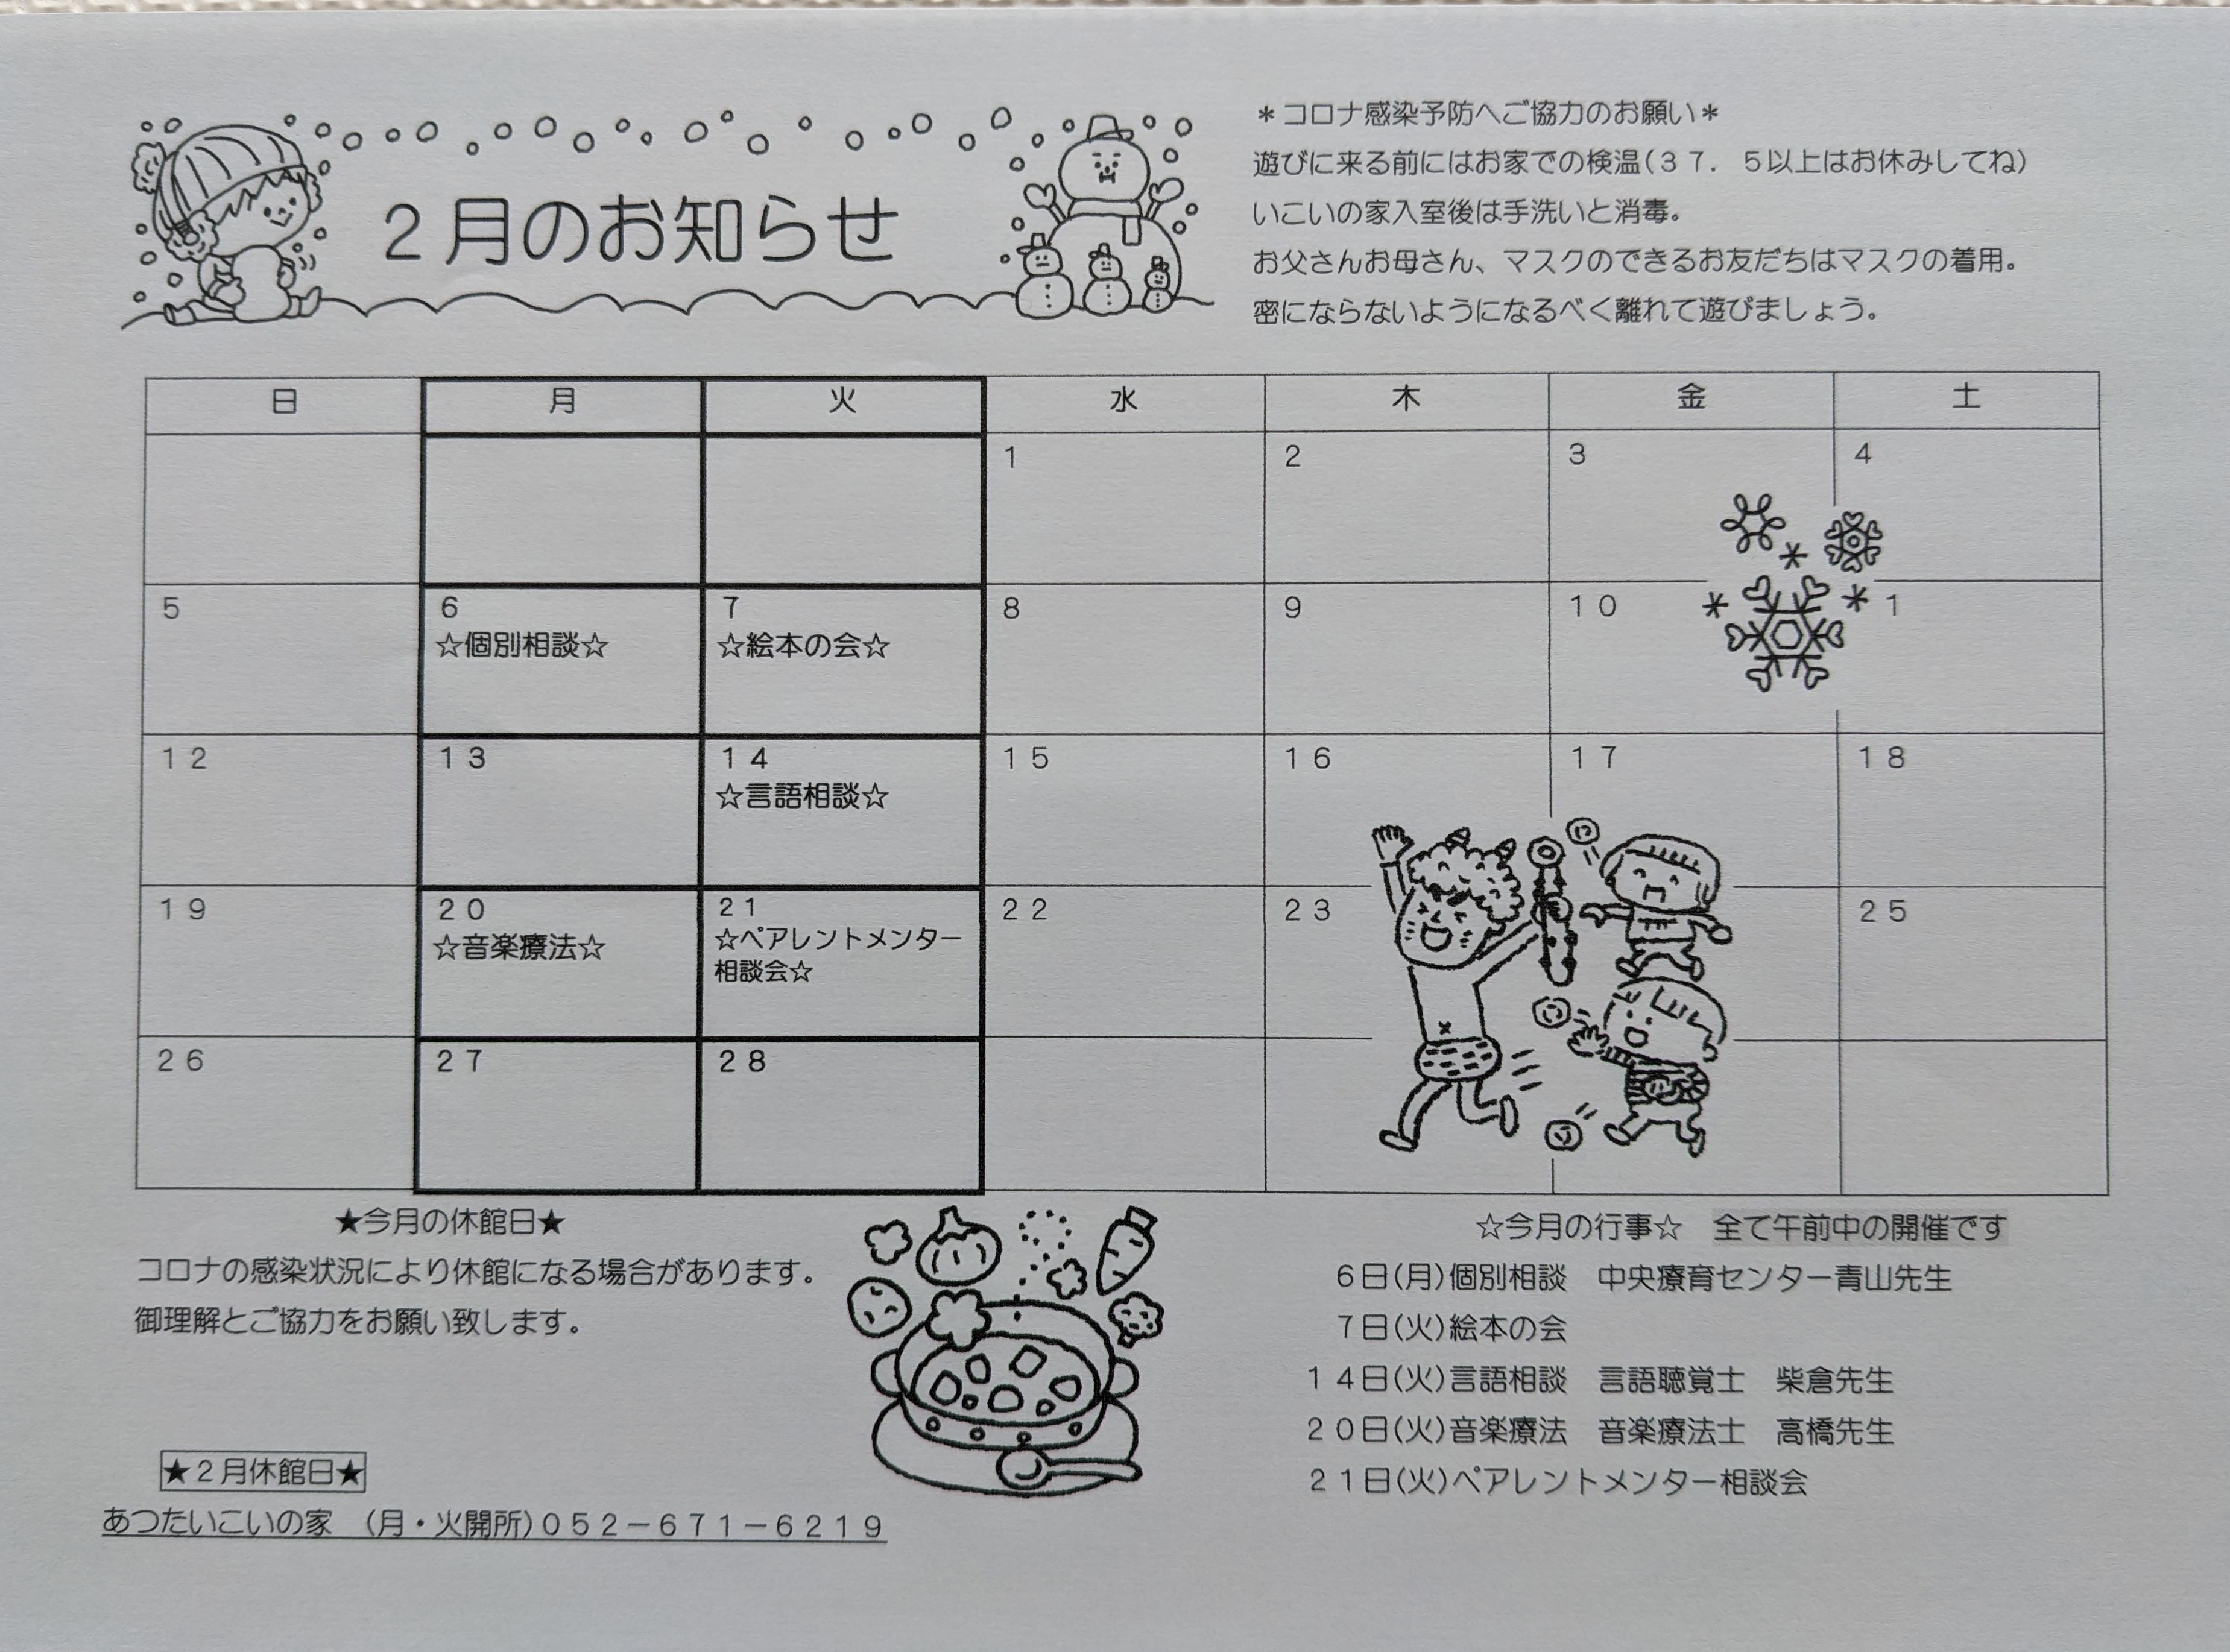 2月のお知らせ
＊コロナ感染予防へご協力のお願い＊
遊びに来る前にはお家での検温(３７．５以上はお休みしてね)
いこいの家入室後は手洗いと消毒。
お父さんお母さん、マスクのできるお友だちはマスクの着用。
密にならないようになるべく離れて遊びましょう。
日 月 火 水 木 金 土
1 2 3 4
5 6 7 8 9 10 1
☆個別相談☆ ☆絵本の会☆
12 13 14 15 16 17 18
☆言語相談☆
19 20 21 22 23 25
☆音楽療法☆ ☆ペアレントメンター
相談会☆
26 27 28
★今月の休館日★
コロナの感染状況により休館になる場合があります。
御理解とご協力をお願い致します。
★２月休館日★
あつたいこいの家　(月・火開所)０５２－６７１－６２１９
☆今月の行事☆　全て午前中の開催です
６日(月)個別相談　中央療育センター青山先生
７日(火)絵本の会
１４日(火)言語相談　言語聴覚士　柴倉先生
２０日(火)音楽療法　音楽療法士　高橋先生
２１日(火)ペアレントメンター相談会